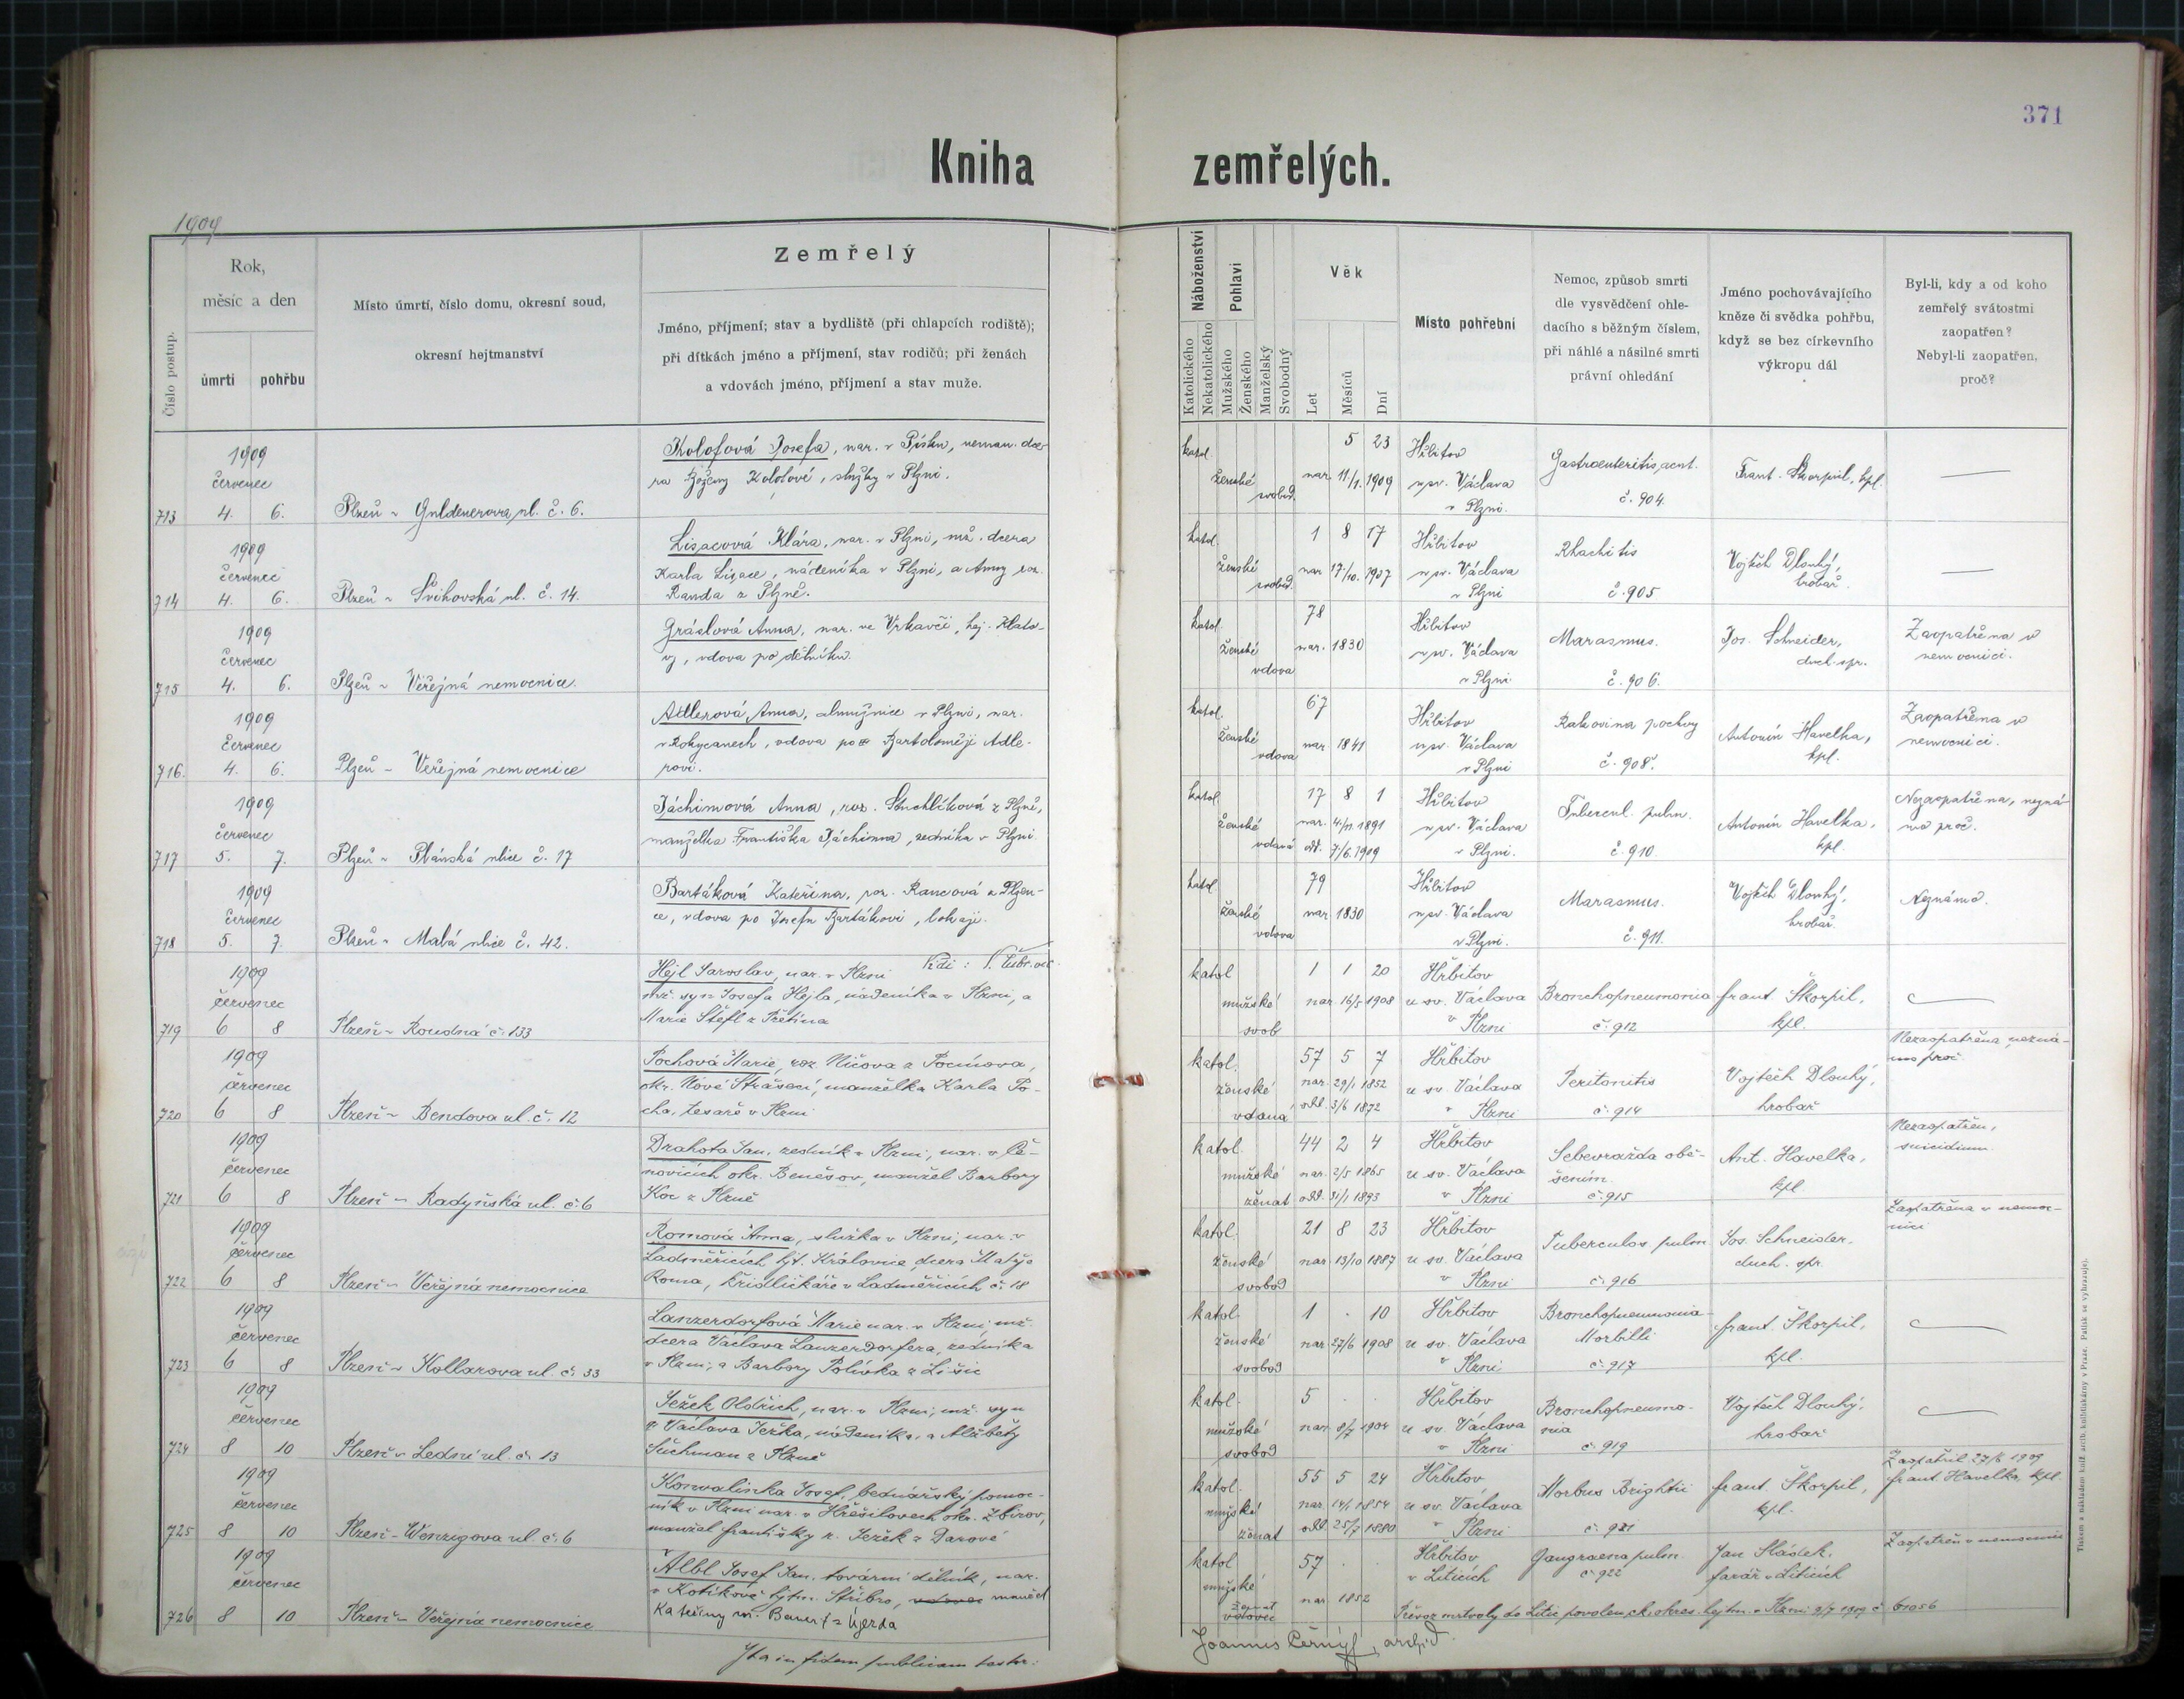 371
Kniha zemřelých.
1909
Číslo postup.
Rok,
měsíc a den
úmrtí
pohřbu
Místo úmrtí, číslo domu, okresní soud,
okresní hejtmanství
Zemřelý
Jméno, příjmení; stav a bydliště (při chlapcích rodiště);
při dítkách jméno a příjmení, stav rodičů; při ženách
a vdovách jméno, příjmení a stav muže.
Náboženství
Katolického
Nekatolického
Pohlaví
Mužského
Ženského
Manželský
Svobodný
Věk
Let
Měsíců
Dní
Místo pohřební
Nemoc, způsob smrti
dle vysvědčení ohle-
dacího s běžným číslem,
při náhlé a násilné smrti
právní ohledání
Jméno pochovávajícího
kněze či svědka pohřbu,
když se bez církevního
výkropu dál
Byl-li, kdy a od koho
zemřelý svátostmi
zaopatřen?
Nebyl-li zaopatřen,
proč?
713
1909
červenec
4. 6.
Plzeň - Guldenerova ul. č. 6.
Kolofová Josefa, nar. v Písku, neman. dce-
ra Boženy Kolofové, služky v Plzni.
katol.
ženské
svobod.
5 23
nar. 11/1. 1909
Hřbitov
u sv. Václava
v Plzni.
Gastroenteritis acut.
č. 904.
Frant. Škorpil, kpl.
714
1909
červenec
4. 6.
Plzeň - Švihovská ul. č. 14.
Lisacová Klára, nar. v Plzni, mž. dcera
Karla Lisace, nádeníka v Plzni, a Anny roz.
Randa z Plzně.
katol.
ženské
svobod.
1 8 17
nar. 17/10. 1907
Hřbitov
u sv. Václava
v Plzni
Rhachitis
č. 905
Vojtěch Dlouhý,
hrobař.
715
1909
červenec
4. 6.
Plzeň - Veřejná nemocnice.
Gráslová Anna, nar. ve Vrkavči, hej. Klato-
vy, vdova po dělníku.
katol.
ženské
vdova
78
nar. 1830
Hřbitov
u sv. Václava
v Plzni
Marasmus.
č. 906.
Jos. Schneider,
duch. spr.
Zaopatřena v
nemocnici.
716.
1909
červenec
4. 6.
Plzeň - Veřejná nemocnice
Adlerová Anna, almužnice v Plzni, nar.
v Rokycanech, vdova po Bartoloměji Adle-
rovi.
katol.
ženské
vdova
67
nar. 1841
Hřbitov
u sv. Václava
v Plzni
Rakovina pochvy
č. 908.
Antonín Havelka,
kpl.
Zaopatřena v
nemocnici.
717
1909
červenec
5. 7.
Plzeň - Plánská ulice č. 17
Jáchimová Anna, roz. Stuchlíková z Plzně,
manželka Františka Jáchima, zedníka v Plzni
katol.
ženské
vdaná
17 8 1
nar. 4/11. 1891
odd. 7/6. 1909
Hřbitov
u sv. Václava
v Plzni.
Tubercul. pulm.
č. 910.
Antonín Havelka,
kpl.
Nezaopatřena, nezná-
mo proč.
718
1909
červenec
5. 7.
Plzeň - Malá ulice č. 42.
Bartáková Kateřina, roz. Rancová z Plzen-
ce, vdova po Josefu Bartákovi, lokaji.
katol.
ženské
vdova
79
nar. 1830
Hřbitov
u sv. Václava
v Plzni.
Marasmus.
č. 911.
Vojtěch Dlouhý,
hrobař.
Neznámo.
719
1909
červenec
6 8
Plzeň - Roudná č. 133
Hejl Jaroslav, nar. v Plzni
mž. syn Josefa Hejla, nádeníka v Plzni, a
Marie Štefl z Přetína
katol
mužské
svob
1 1 20
nar 16/5 1908
Hřbitov
u sv. Václava
v Plzni
Bronchopneumonia
č. 912
Frant. Škorpil,
kpl.
720
1909
červenec
6 8
Plzeň - Bendova ul. č. 12
Pochová Marie, roz. Ničova z Pocínova,
okr. Nové Strašecí, manželka Karla Po-
cha, tesaře v Plzni
katol.
ženské
vdaná
57 5 7
nar. 29/1 1852
odd. 3/6 1872
Hřbitov
u sv. Václava
v Plzni
Peritonitis
č. 914
Vojtěch Dlouhý,
hrobař
Nezaopatřena, nezná-
mo proč
721
1909
červenec
6 8
Plzeň - Radyňská ul. č. 6
Drahota Jan, zedník v Plzni, nar. v Če-
novicích okr. Benešov, manžel Barbory
Koc z Plzně
katol.
mužské
ženat
44 2 4
nar. 2/5 1865
odd. 31/1 1893
Hřbitov
u sv. Václava
v Plzni
Sebevražda obě-
šením.
č. 915
Ant. Havelka,
kpl
Nezaopatřen,
suicidium.
722
1909
červenec
6 8
Plzeň - Veřejná nemocnice
Romová Anna, služka v Plzni, nar. v
Ladměřicích hjt. Kralovice, dcera Matěje
Roma, křidličkáře v Ladměřicích č. 18
katol.
ženské
svobod
21 8 23
nar 13/10 1887
Hřbitov
u sv. Václava
v Plzni
Tuberculos pulm
č. 916
Jos. Schneider.
duch. spr.
Zaopatřena v nemoc-
nici
723
1909
červenec
6 8
Plzeň - Kollarova ul. č. 33
Lanzendorfová Marie nar. v Plzni, mž.
dcera Václava Lanzendorfera, zedníka
v Plzni, a Barbory Polívka z Lišic
katol.
ženské
svobod
1 . 10
nar 27/6 1908
Hřbitov
u sv. Václava
v Plzni
Bronchopneumonia -
Morbilli
č. 917
Frant. Škorpil,
kpl.
724
1909
červenec
8 10
Plzeň - Lední ul. č. 13
Ježek Oldřich, nar. v Plzni, mž. syn
Václava Ježka, nádeníka, a Alžběty
Suchman z Plzně
katol.
mužské
svobod
5 . .
nar. 8/7 1904
Hřbitov
u sv. Václava
v Plzni
Bronchopneumo-
nia
č. 919
Vojtěch Dlouhý,
hrobař
725
1909
červenec
8 10
Plzeň - Wenzigova ul. č. 6
Konvalinka Josef, bednářský pomoc-
ník v Plzni nar. v Hřešihlovech okr. Zbirov,
manžel Františky r. Ježek z Darové
katol.
mužské
ženat
55 5 24
nar. 14/1 1854
odd. 25/7 1880
Hřbitov
u sv. Václava
v Plzni
Morbus Brightii
č. 921
Frant. Škorpil,
kpl.
Zaopatřil 27/6 1909
Frant. Havelka, kpl.
726
1909
červenec
8 10
Plzeň - Veřejná nemocnice
Albl Josef Jan, tovární dělník, nar.
v Kotíkově hjtm. Stříbro, vdovec manžel
Kateřiny roz. Bauer z Újezda
katol
mužské
ženat
vdovec
57 . .
nar. 1852
Hřbitov
v Liticích
Gangraena pulm.
č. 922
Jan Sládek,
farář v Liticích
Zaopatřen v nemocnici
Převoz mrtvoly do Litic povolen c.k. okres. hejtm. v Plzni 9/7 1909 č 61056
Ita in fidem publicam testor:
Joannes Černý, archid.
Tiskem a nákladem kníž. arcib. knihtiskárny v Praze. Patisk se vyhrazuje.